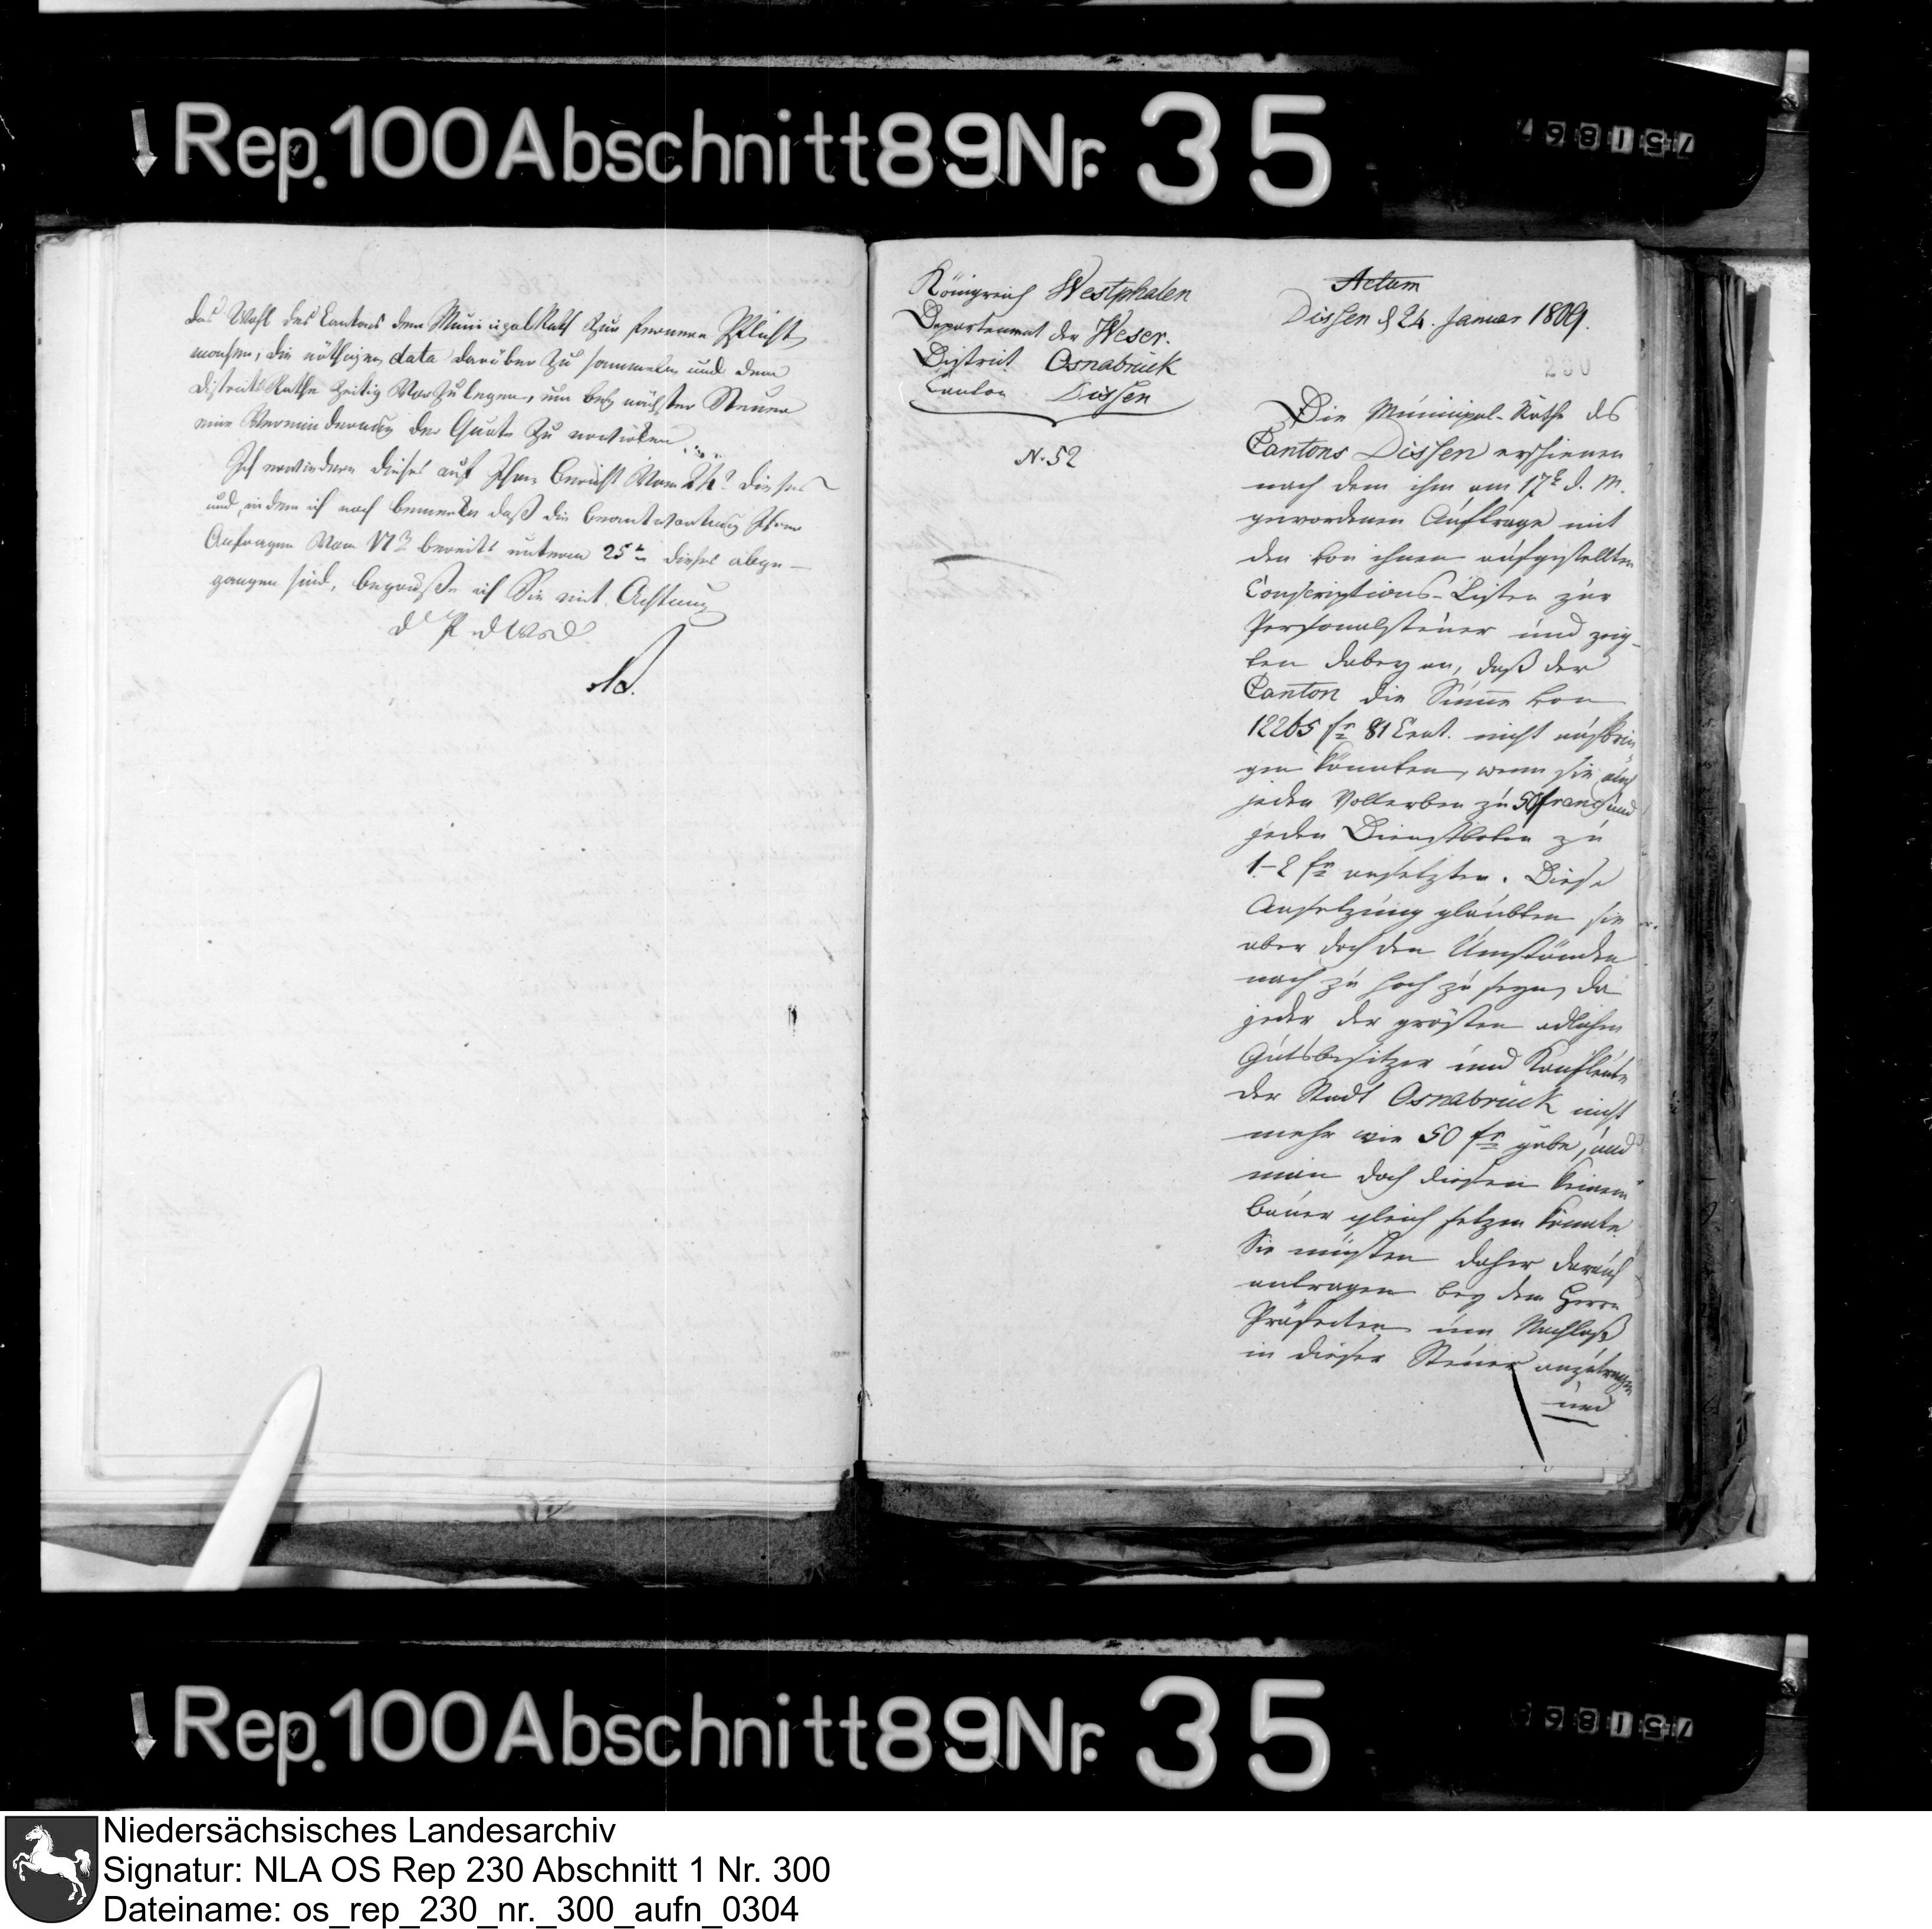 Rep. 100 Abschnitt 89 Nr. 35
das Wohl des Cantons dem Municipal Rath zur ferneren Pflicht
machen, die nöthigen data darüber zu sammeln und dem
Districts Rathe zeitig vorzulegen, um bey nächster Steuer
eine Verminderung der Quote zu erwirken.
Ich erwiedere dieses auf Ihren Bericht vom dieses
und, indem ich noch bemerke daß die Beantwortung Ihrer
Anfragen vom bereits unterm 25t dieses abge-
gangen sind, begrüße ich Sie mit Achtung
Königreich Westphalen
Departement der Weser.
District Osnabrück
Canton Dissen
N. 52
Actum
Dissen d 24. Januar 1809.
230
Die Municipal-Räthe des
Cantons Dissen erschienen
nach dem ihm am 17t d. M.
gewordenen Auftrage mit
den von ihnen aufgestellten
Conscriptions-Listen zur
Personalsteuer und zeig-
ten dabey an, daß der
Canton die Summe von
12265 fr 81 Cent. nicht aufbrin
gen könnten, wenn sie auch
jeden Vollerben zu 50 francs und
jeden Dienstboten zu
1-2 fr ansetzten. Diese
Ansetzung glaubten sie
aber doch den Umständen
nach zu hoch zu seyn, da
jeder der größten adlichen
Gutsbesitzer und Kaufleute
der Stadt Osnabrück nicht
mehr wie 50 fr gebe, und
man doch diesen keinem
Bauer gleich setzen könnte.
Sie müsten daher darauf
antragen bey dem Herrn
Präfecten um Nachlaß
in dieser Steuer anzutragen
und
Rep. 100 Abschnitt 89 Nr. 35
Niedersächsisches Landesarchiv
Signatur: NLA OS Rep 230 Abschnitt 1 Nr. 300
Dateiname: os_rep_230_nr._300_aufn_0304